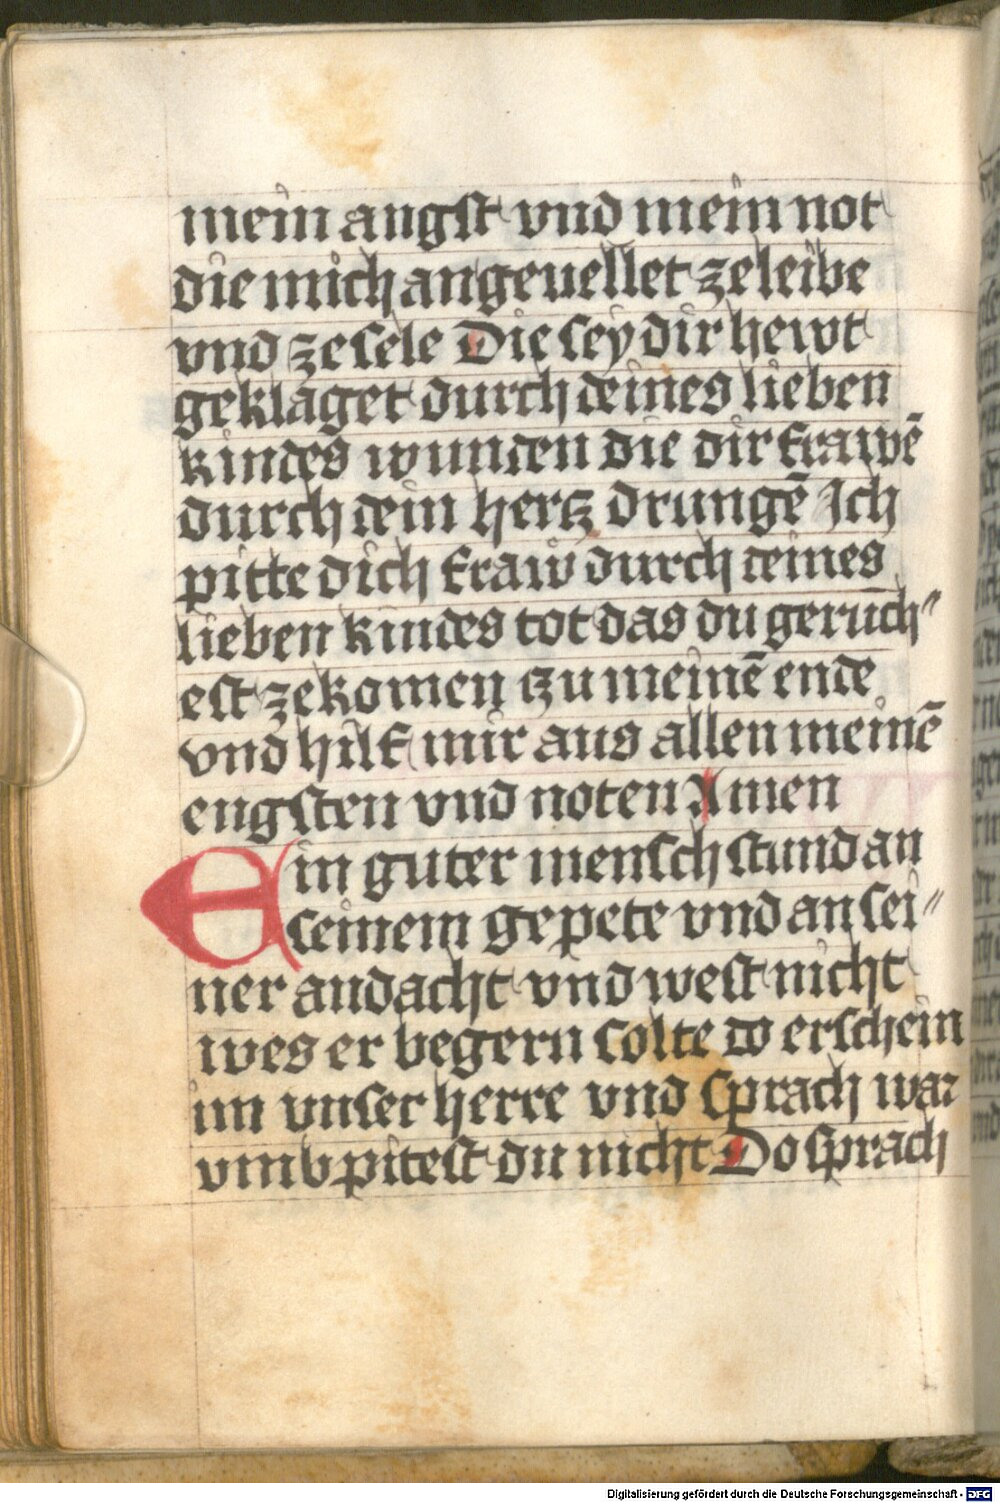 mein angst vnd mein not
die mich angeuellet ze leibe
vnd ze sele Die sey dir hewt
geklaget durch deines lieben
kindes wunden die dir frawē
durch dein hertz drungē Ich
pitte dich fraw durch deines
lieben kindes tot das du gerůch〃
est ze komen tzu meinē ende
vnd hilf mir aus allen meinē
engsten vnd noten Amen
Ein guter mensch stund an
seinem gepete vnd an sei〃
ner andacht vnd west nicht
wes er begern solte do erschein
im vnser herre vnd sprach war
vmb pitest du nicht Do sprach
Digitalisierung gefördert durch die Deutsche Forschungsgemeinschaft - DFG